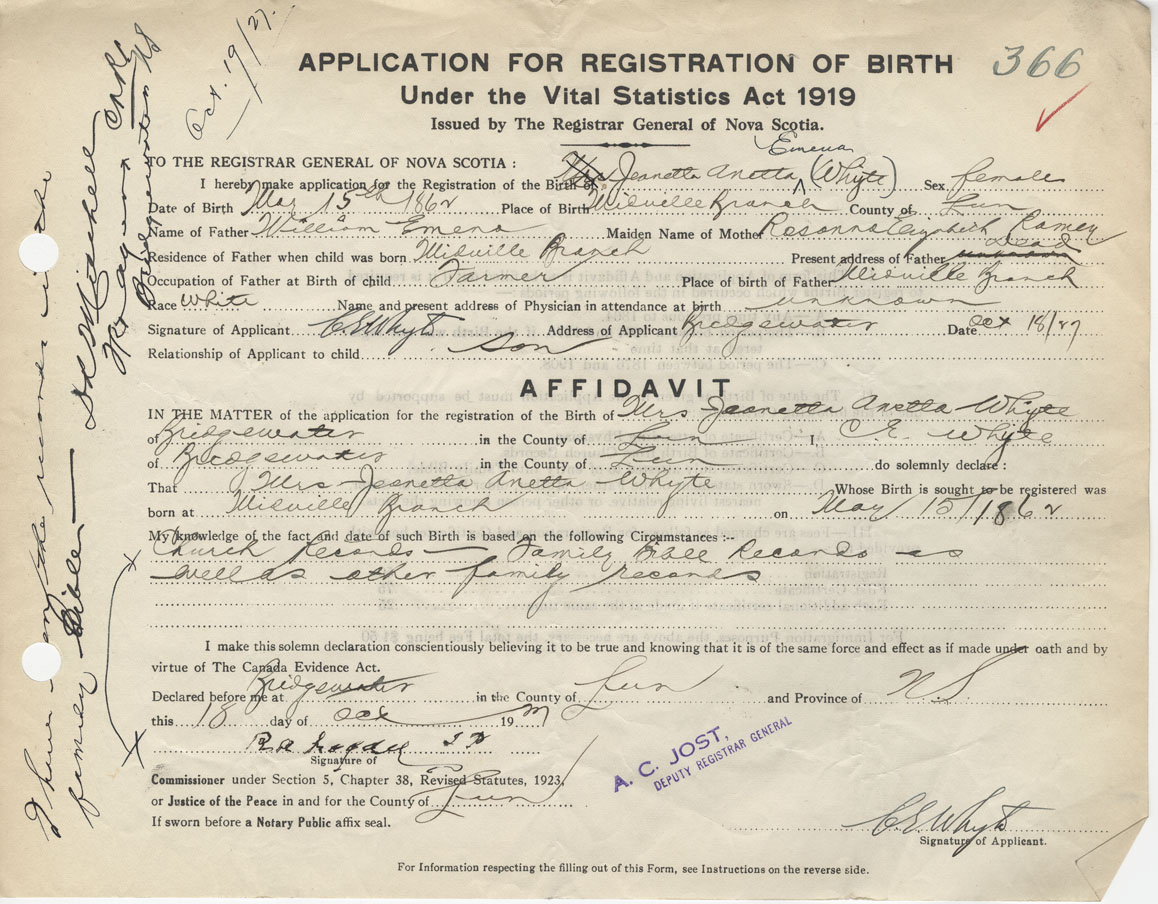 366
APPLICATION FOR REGISTRATION OF BIRTH
Under the Vital Statistics Act 1919
Issued by The Registrar General of Nova Scotia.
Oct. 19/27.
TO THE REGISTRAR GENERAL OF NOVA SCOTIA :
Emena
I hereby make application for the Registration of the Birth of Mrs Jeanetta Anetta (Whyte) Sex female
Date of Birth May 15th 1862 Place of Birth Midville Branch County of Lun
Name of Father William Emena Maiden Name of Mother Rosanna Elizabeth Ramey
Residence of Father when child was born Midville Branch Present address of Father Dead
Occupation of Father at Birth of child Farmer Place of birth of Father Midville Branch
Race White Name and present address of Physician in attendance at birth unknown
Signature of Applicant C E Whyte Address of Applicant Bridgewater Date Oct 18/27
Relationship of Applicant to child Son
AFFIDAVIT
IN THE MATTER of the application for the registration of the Birth of Mrs Jeanetta Anetta Whyte
of Bridgewater in the County of Lun I, C. E. Whyte
of Bridgewater in the County of Lun do solemnly declare :
That Mrs Jeanetta Anetta Whyte Whose Birth is sought to be registered was
born at Midville Branch on May 15/1862
My knowledge of the fact and date of such Birth is based on the following Circumstances :-
Church Records - Family Bible Records as
well as other family records
I make this solemn declaration conscientiously believing it to be true and knowing that it is of the same force and effect as if made under oath and by
virtue of The Canada Evidence Act.
Declared before me at Bridgewater in the County of Lun and Province of N.S.
this 18 day of Oct 1927
Signature of
Commissioner under Section 5, Chapter 38, Revised Statutes, 1923,
or Justice of the Peace in and for the County of Lun
If sworn before a Notary Public affix seal.
A. C. JOST,
DEPUTY REGISTRAR GENERAL
C E Whyte
Signature of Applicant.
For Information respecting the filling out of this Form, see Instructions on the reverse side.
I have seen the record in the
family Bible